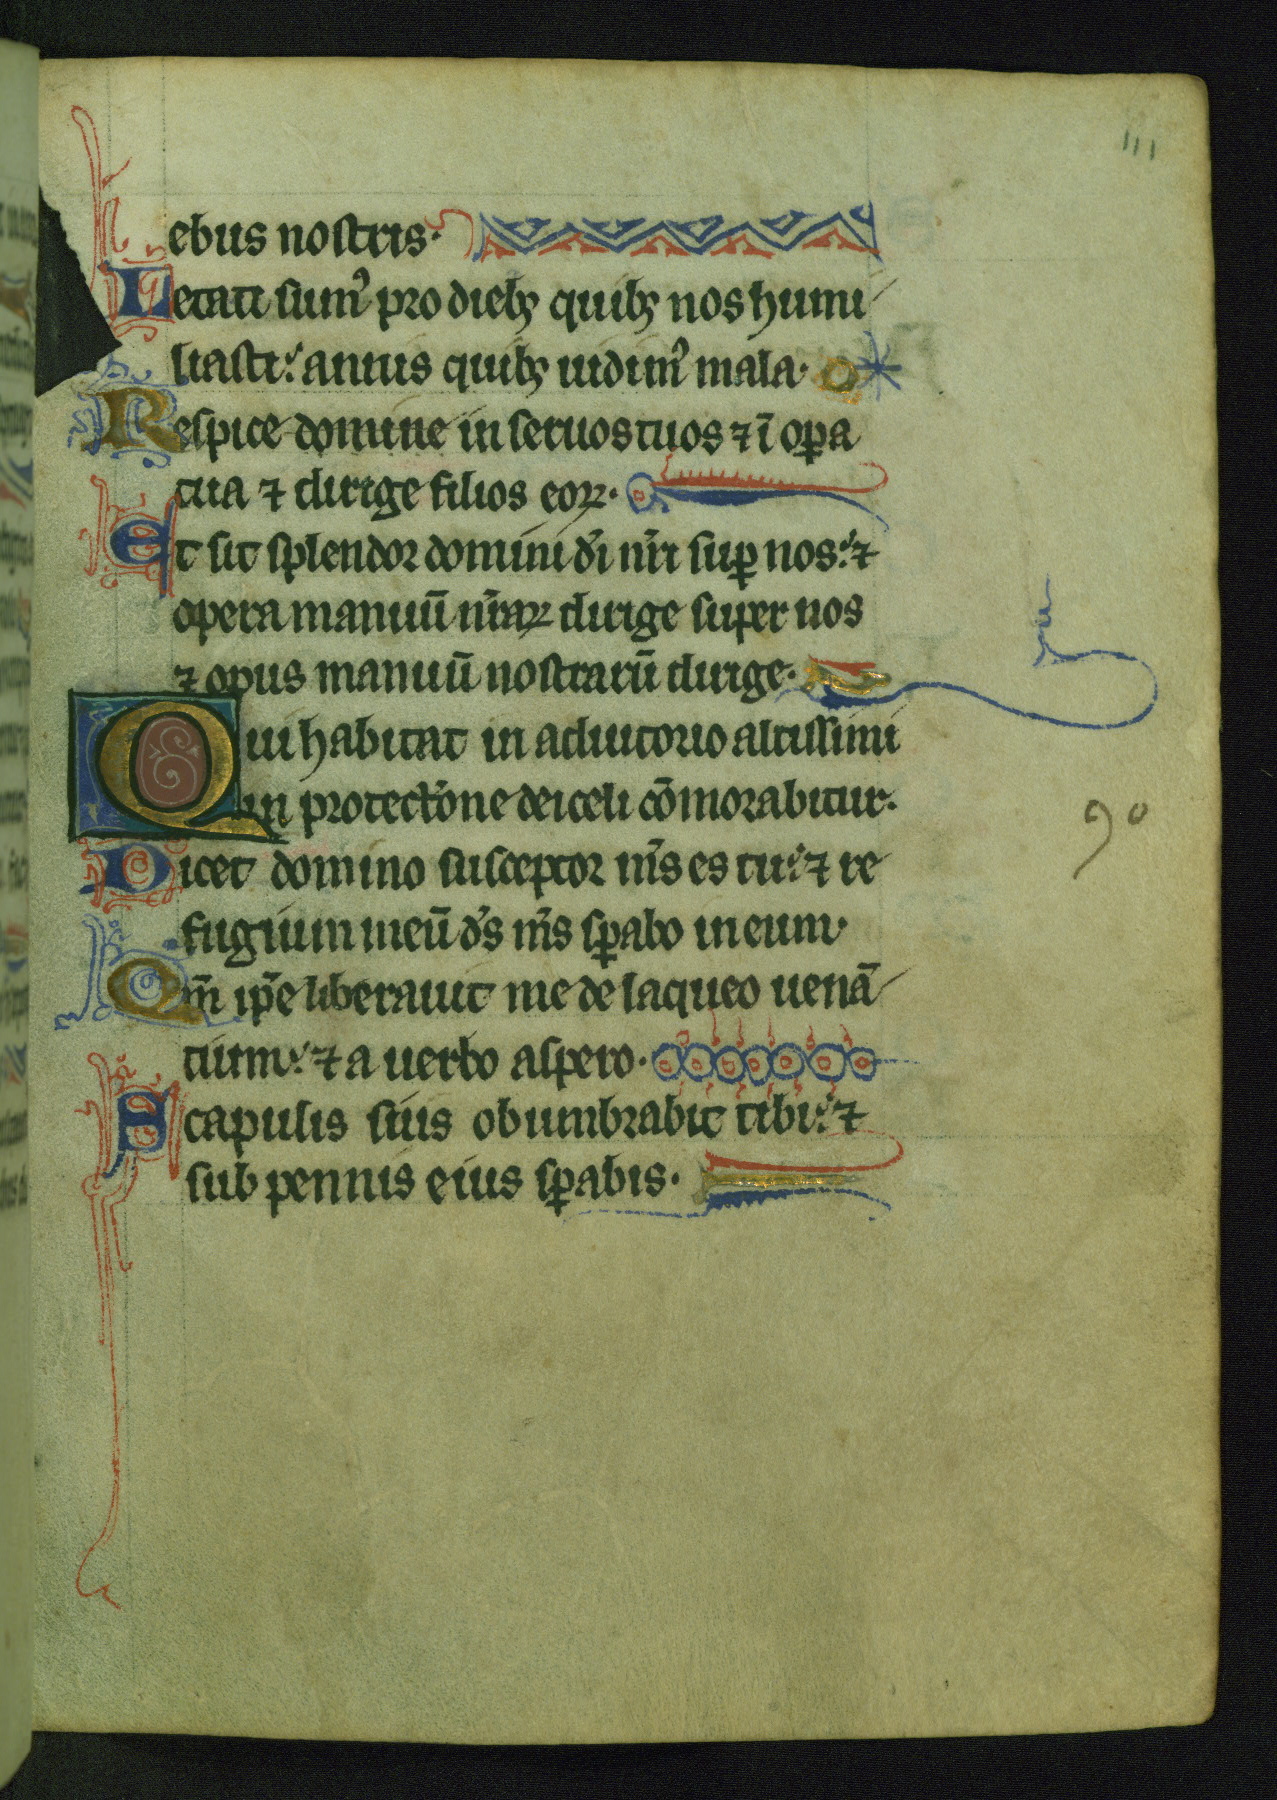 111
ebus nostris·
Letati sumꝰ pro diebꝫ quibꝫ nos humi
liasti: annis quibꝫ uidimꝰ mala·
Respice domine in seruos tuos ⁊ ī oꝑa
tua ⁊ dirige filios eoꝝ·
Et sit splendor domini dī nr̄i suꝑ nos: ⁊
opera manuū nr̄aꝝ dirige super nos
⁊ opus manuū nostrarū dirige·
Qui habitat in adiutorio altissimi
in protectōne dei celi cōmorabitur·
90
Dicet domino susceptor m̄s es tu: ⁊ re
fugium meū ds̄ m̄s sꝑabo in eum·
Qm̄ ip̄e liberauit me de laqueo uenā
tium: ⁊ a uerbo aspero·
Scapulis suis obumbrabit tibi: ⁊
sub pennis eius sꝑabis·